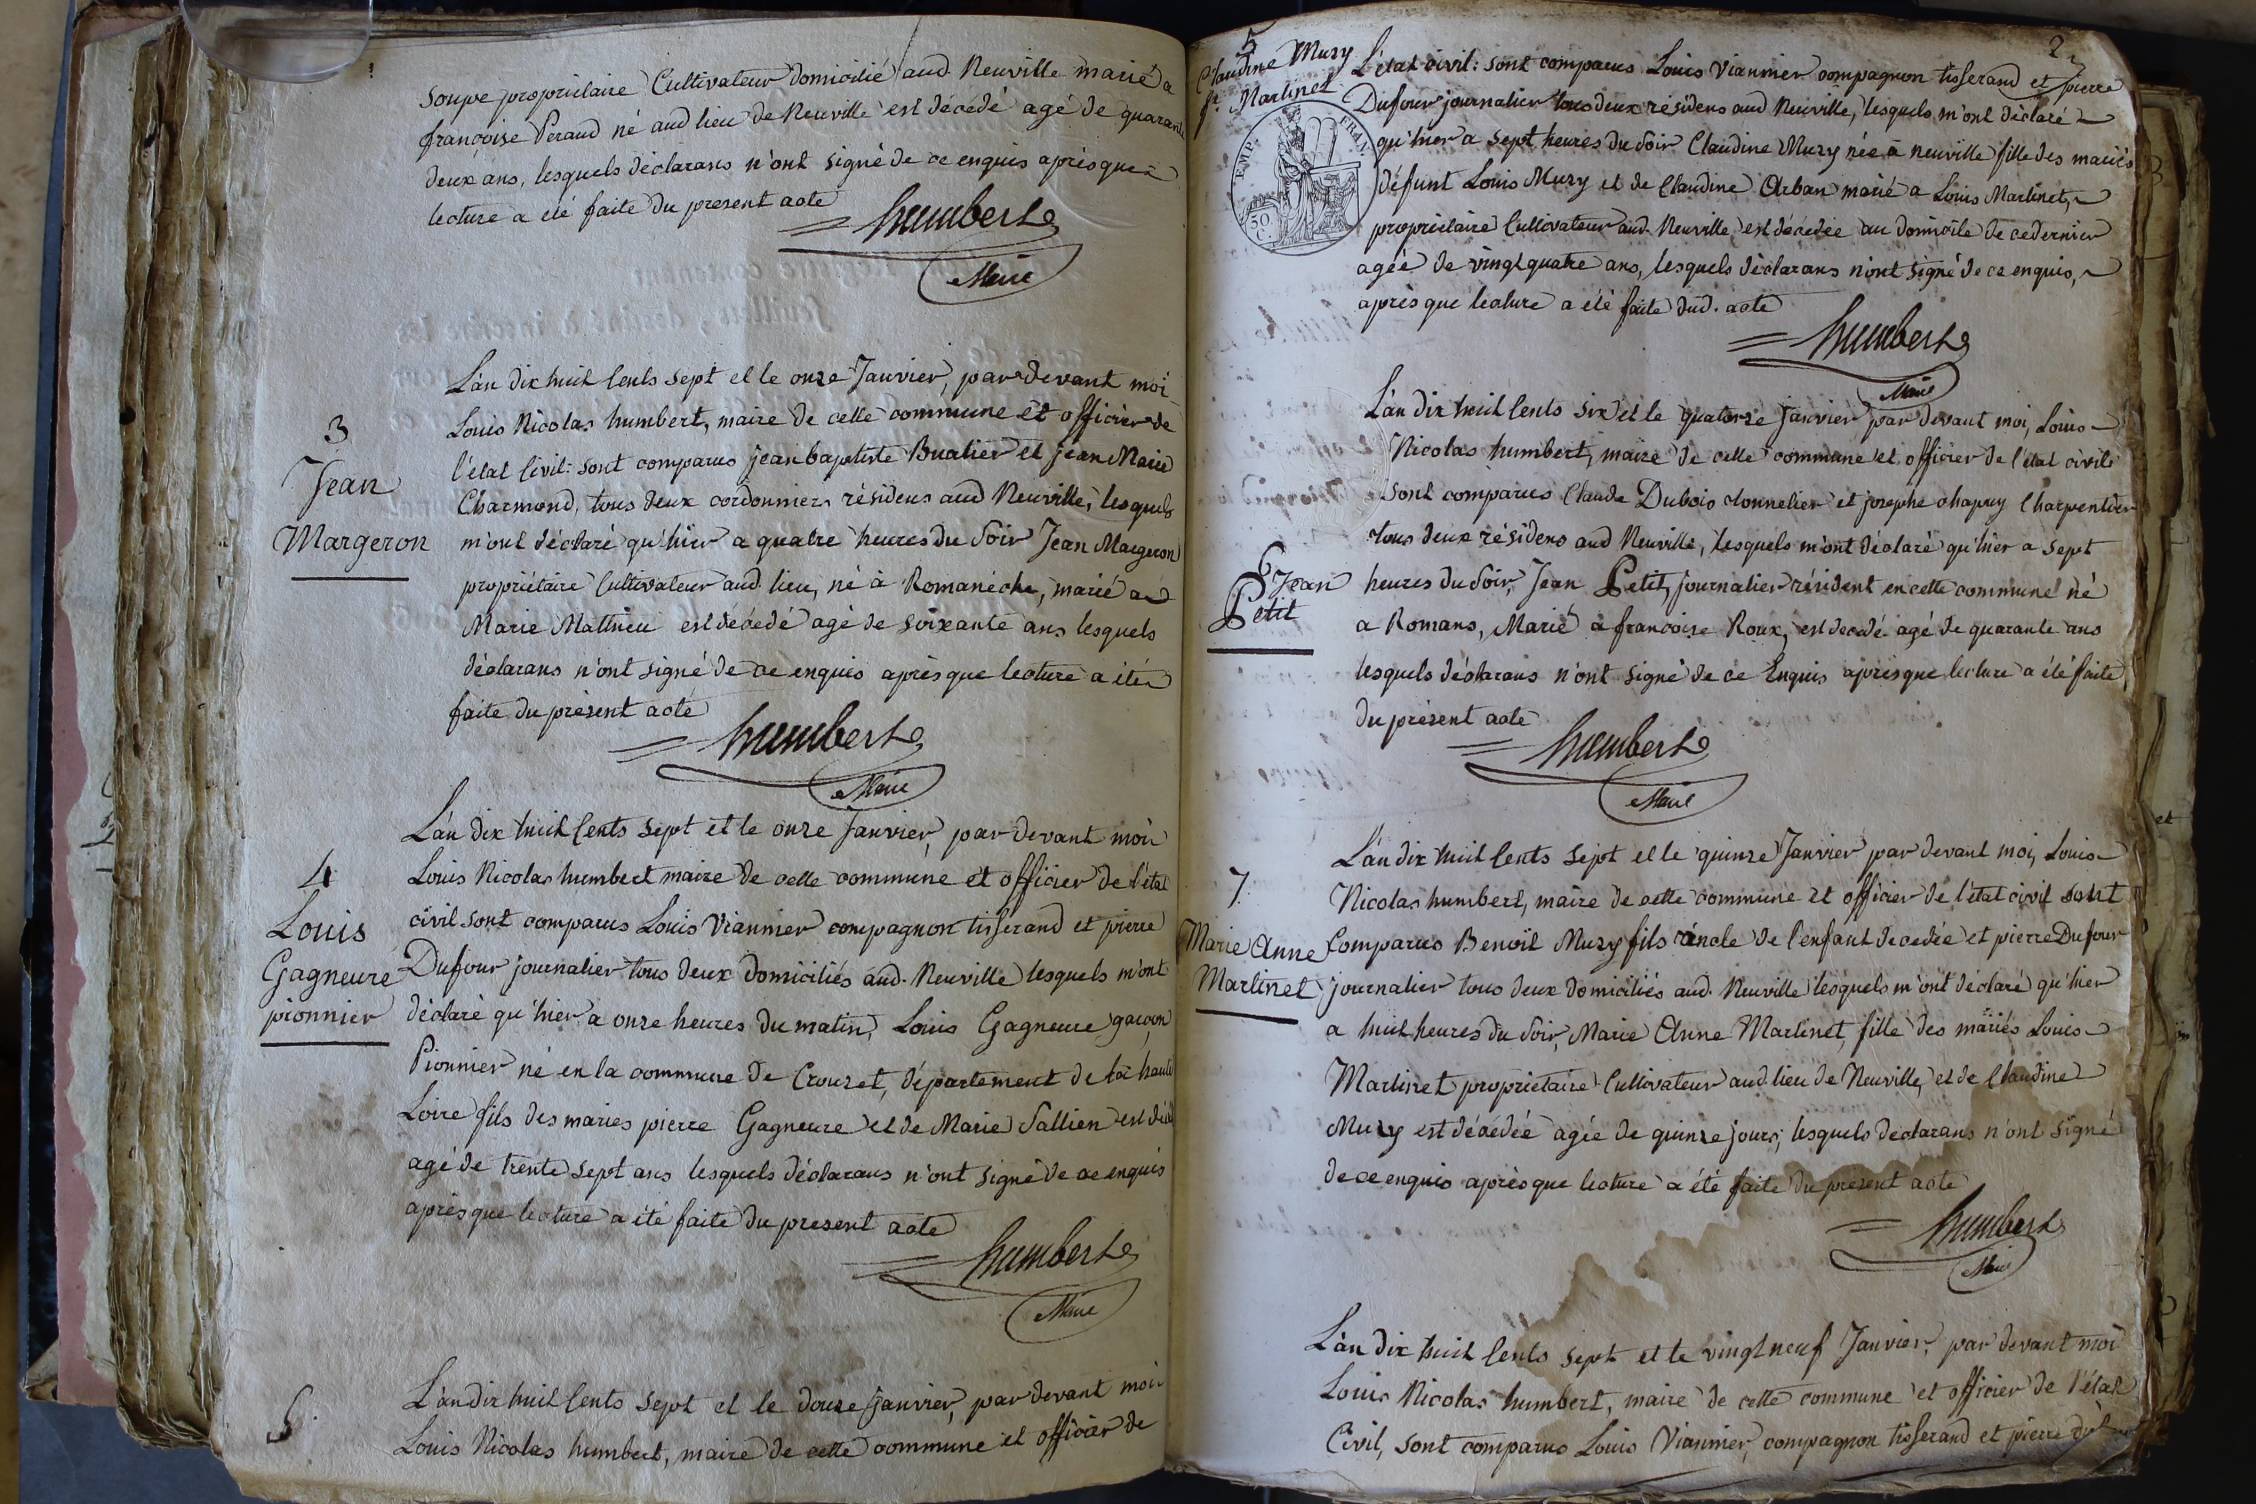 Soupe propriétaire Cultivateur domicilié aud. Neuville marié a
françoise Peraud né aud lieu de Neuville est décédé agé de quarante
deux ans, lesquels déclarans n'ont signé de ce enquis après que
lecture a été faite du present acte
humbert
Maire
3
Jean
Margeron
L'an dix huit Cents sept et le onze Janvier, par devant moi
Louis Nicolas humbert, maire de cette commune et officier de
l'état Civil: sont comparus jean baptiste Bualier et jean Marie
Charmond, tous deux cordonniers résidens aud Neuville, lesquels
m'ont déclaré qu'hier a quatre heures du Soir Jean Margeron
propriétaire Cultivateur aud. lieu, né à Romanéche, marié a
Marie Mathieu est décédé agé de soixante ans lesquels
déclarans n'ont signé de ce enquis après que lecture a été
faite du présent acte
humbert
Maire
4
Louis
Gagneure
pionnier
L'an dix huit Cents sept et le onze Janvier, par devant moi
Louis Nicolas humbert maire de cette commune et officier de l'état
civil sont comparus Louis Viannier compagnon tisserand et pierre
Dufour journalier tous deux domiciliés aud. Neuville lesquels m'ont
déclaré qu'hier à onze heures du matin, Louis Gagneure garçon
Pionnier né en la commune de Crouzet, département de la haute
Loire fils des mariés pierre Gagneure et de Marie Sallien est décédé
agé de trente sept ans lesquels déclarans n'ont signé de ce enquis
après que lecture a été faite du present acte
humbert
Maire
5.
L'an dix huit Cents sept et le douze janvier, par devant moi
Louis Nicolas humbert, maire de cette commune et officier de
2
5
Claudine Muzy
fe. Martinet
EMP. FRAN.
50 C.
L'état civil: sont comparus Louis Viannier compagnon tisserand et pierre
Dufour journalier tous deux résidens aud Neuville, lesquels m'ont déclaré
qu'hier a sept heures du Soir Claudine Muzy née à neuville fille des mariés
défunt Louis Muzy et de Claudine Arban marié a Louis Martinet,
propriétaire Cultivateur aud. Neuville, est décédée au domicile de ce dernier
agée de vingt quatre ans, lesquels déclarans n'ont signé de ce enquis,
après que lecture a été faite dud. acte
humbert
Maire
L'an dix huit Cents six et le quatorze janvier par devant moi, Louis
Nicolas humbert, maire de cette commune et officier de l'état civil
sont comparus Claude Dubois tonnelier et josephe chapuy Charpentier
tous deux résidens aud Neuville, lesquels m'ont déclaré qu'hier a sept
6. Jean
Petit
heures du Soir, Jean Petit, journalier résident en cette commune né
a Romans, Marié a francoise Roux, est decédé agé de quarante ans
lesquels déclarans n'ont signé de ce Enquis après que lecture a été faite
du présent acte
humbert
Maire
7.
Marie Anne
Martinet
L'an dix huit Cents sept et le quinze Janvier par devant moi, Louis
Nicolas humbert, maire de cette commune et officier de l'état civil sont
Comparus Benoît Muzy fils oncle de l'enfant decedée et pierre Dufour
journalier tous deux domiciliés aud. Neuville lesquels m'ont déclaré qu'hier
a huit heures du Soir, Marie Anne Martinet, fille des mariés Louis
Martinet propriétaire Cultivateur aud. lieu de Neuville, et de Claudine
Muzy est décédée agée de quinze jours; lesquels declarans n'ont signé
de ce enquis après que lecture a été faite du présent acte
humbert
Maire
L'an dix huit Cents sept et le vingt neuf Janvier, par devant moi
Louis Nicolas humbert, maire de cette commune et officier de l'état
Civil, sont comparus Louis Viannier, compagnon tisserand et pierre